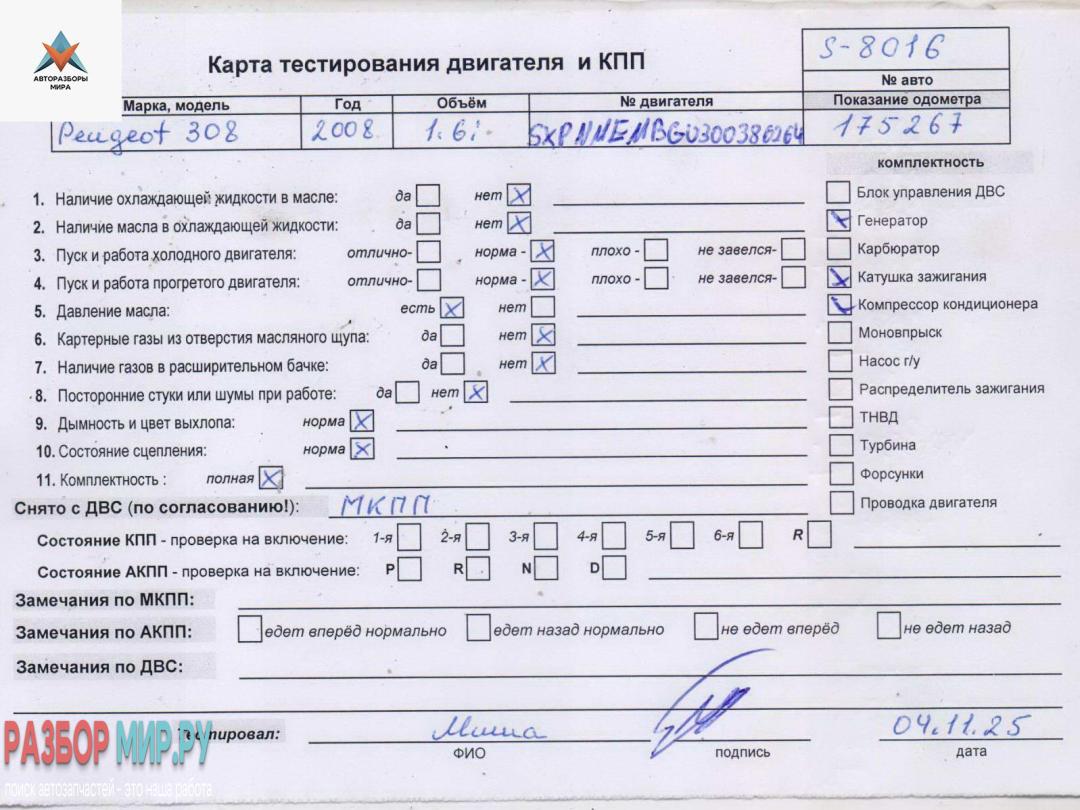 АВТОРАЗБОРЫ
МИРА
Карта тестирования двигателя и КПП
S-8016
№ авто
Марка, модель Год Объём № двигателя Показание одометра
Peugeot 308 2008 1.6i 175267
комплектность
1. Наличие охлаждающей жидкости в масле: да нет Блок управления ДВС
2. Наличие масла в охлаждающей жидкости: да нет Генератор
3. Пуск и работа холодного двигателя: отлично- норма - плохо - не завелся- Карбюратор
4. Пуск и работа прогретого двигателя: отлично- норма - плохо - не завелся- Катушка зажигания
5. Давление масла: есть нет Компрессор кондиционера
6. Картерные газы из отверстия масляного щупа: да нет Моновпрыск
7. Наличие газов в расширительном бачке: да нет Насос г/у
8. Посторонние стуки или шумы при работе: да нет Распределитель зажигания
9. Дымность и цвет выхлопа: норма ТНВД
10. Состояние сцепления: норма Турбина
11. Комплектность : полная Форсунки
Снято с ДВС (по согласованию!): МКПП Проводка двигателя
Состояние КПП - проверка на включение: 1-я 2-я 3-я 4-я 5-я 6-я R
Состояние АКПП - проверка на включение: P R N D
Замечания по МКПП:
Замечания по АКПП: едет вперёд нормально едет назад нормально не едет вперёд не едет назад
Замечания по ДВС:
РАЗБОРМИР.РУ
Тестировал: Миша 04.11.25
ФИО подпись дата
поиск автозапчастей - это наша работа